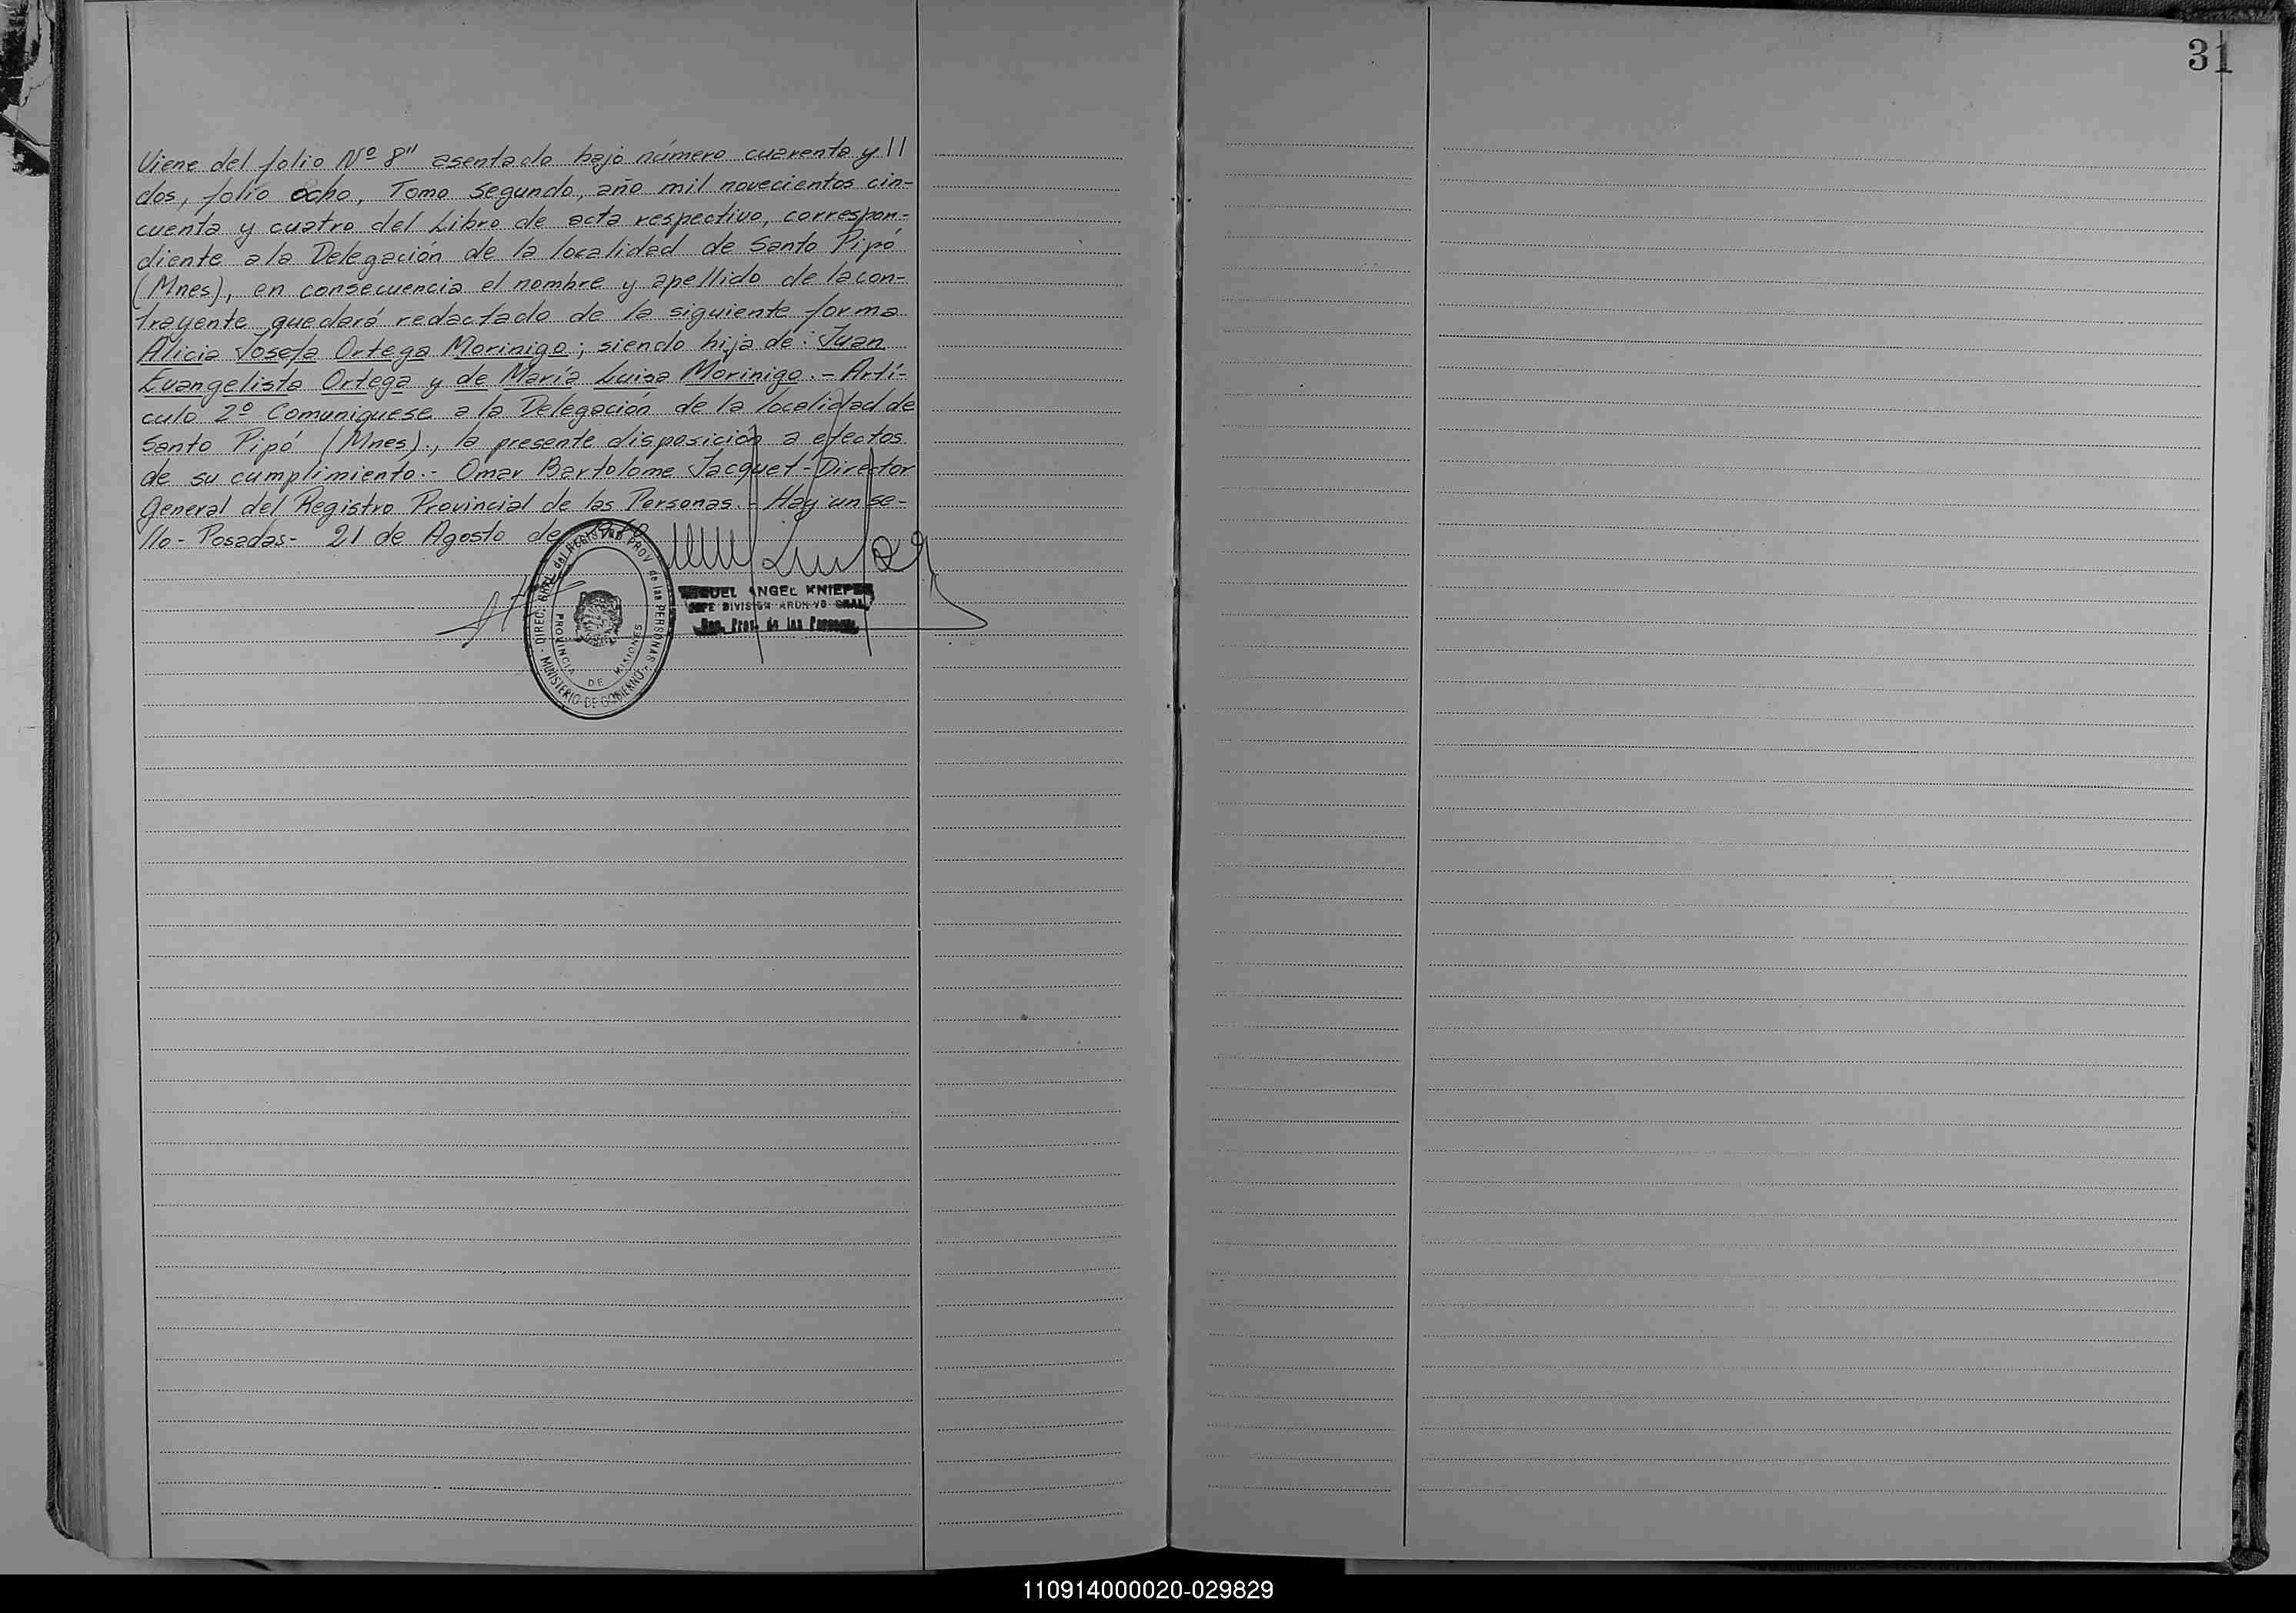 31
Viene del folio Nº 8" asentado bajo número cuarenta y //
dos, folio ocho, Tomo Segundo, año mil novecientos cin-
cuenta y cuatro del Libro de acta respectivo, correspon-
diente a la Delegación de la localidad de Santo Pipó
(Mnes), en consecuencia el nombre y apellido de la con-
trayente quedará redactado de la siguiente forma
Alicia Josefa Ortega Morinigo; siendo hija de: Juan
Evangelista Ortega y de María Luisa Morinigo.- Artí-
culo 2º Comuniquese a la Delegación de la localidad de
Santo Pipó (Mnes)., la presente disposición a efectos
de su cumplimiento.- Omar Bartolome Jacquet - Director
General del Registro Provincial de las Personas.- Hay un se-
llo - Posadas - 21 de Agosto de
DIREC. GRAL. del REGISTRO PROV de las PERSONAS
MINISTERIO DE GOBIERNO
PROVINCIA DE MISIONES
MIGUEL ANGEL KNIEPER
JEFE DIVISION ARCHIVO GRAL
Reg. Prov. de las Personas
110914000020-029829